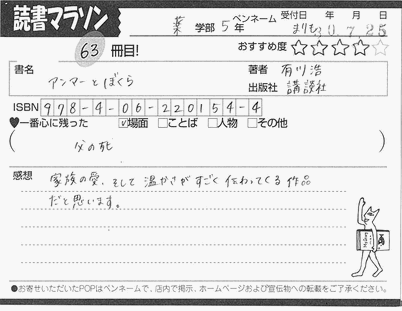 読書マラソン
薬 学部 5 年 ペンネーム まりも 受付日 年 月 日
30 7 25
63 冊目!
おすすめ度 ☆☆☆☆☆
書名 アンマーとぼくら
著者 有川浩
出版社 講談社
ISBN 978-4-06-220154-4
♥一番心に残った ☑場面 □ことば □人物 □その他
( 父の死 )
感想 家族の愛、そして温かさがすごく伝わってくる作品
だと思います。
●お寄せいただいたPOPはペンネームで、店内で掲示、ホームページおよび宣伝物への転載をご了承ください。